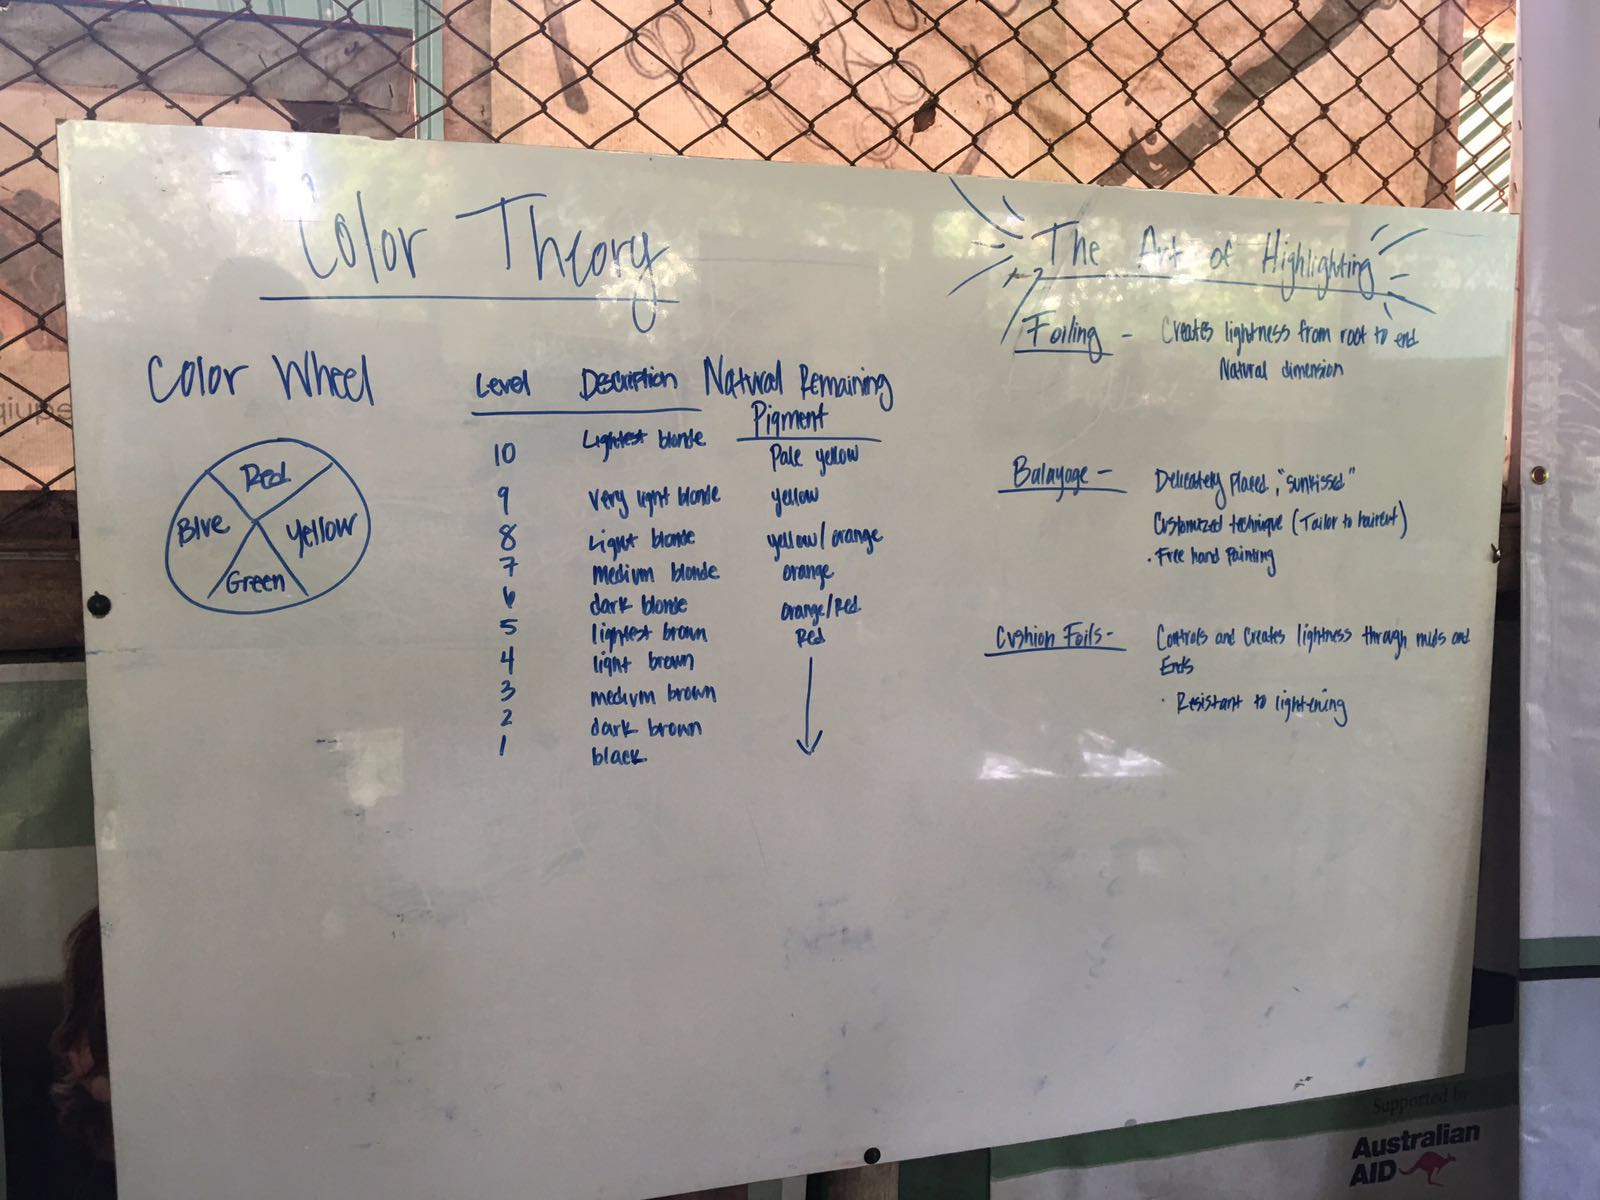 Color Theory
Color Wheel
Red
Blue
Yellow
Green
Level Description Natural Remaining Pigment
10 Lightest blonde Pale yellow
9 very light blonde yellow
8 Light blonde yellow/orange
7 medium blonde orange
6 dark blonde orange/Red
5 lightest brown Red
4 light brown
3 medium brown
2 dark brown
1 black
The Art of Highlighting
Foiling - Creates lightness from root to end
Natural dimension
Balayage - Delicately placed, "sunkissed"
Customized technique (Tailor to haircut)
· Free hand Painting
Cushion Foils - Controls and creates lightness through mids and
Ends
· Resistant to lightening
Supported by
Australian
AID